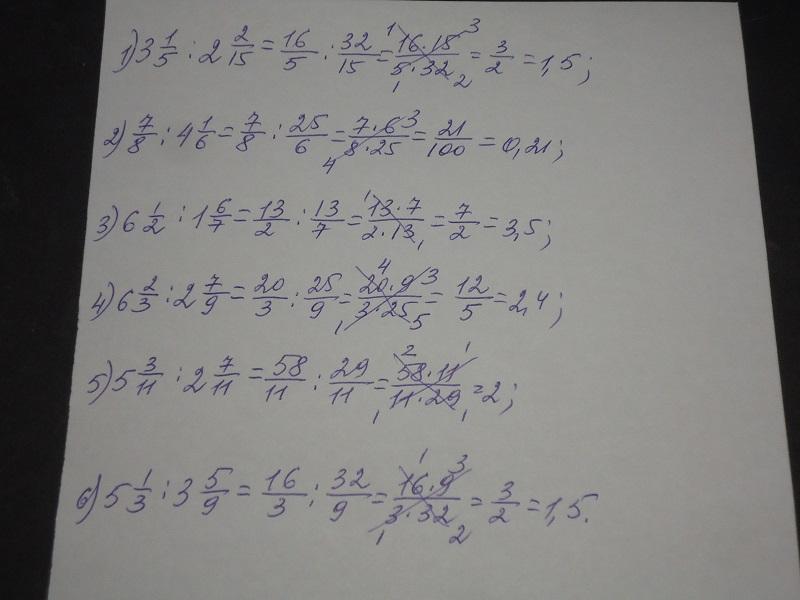 1) 3 1/5 : 2 2/15 = 16/5 : 32/15 = 16·15/5·32 = 3/2 = 1,5;
2) 7/8 : 4 1/6 = 7/8 : 25/6 = 7·6/8·25 = 21/100 = 0,21;
3) 6 1/2 : 1 6/7 = 13/2 : 13/7 = 13·7/2·13 = 7/2 = 3,5;
4) 6 2/3 : 2 7/9 = 20/3 : 25/9 = 20·9/3·25 = 12/5 = 2,4;
5) 5 3/11 : 2 7/11 = 58/11 : 29/11 = 58·11/11·29 = 2;
6) 5 1/3 : 3 5/9 = 16/3 : 32/9 = 16·9/3·32 = 3/2 = 1,5.